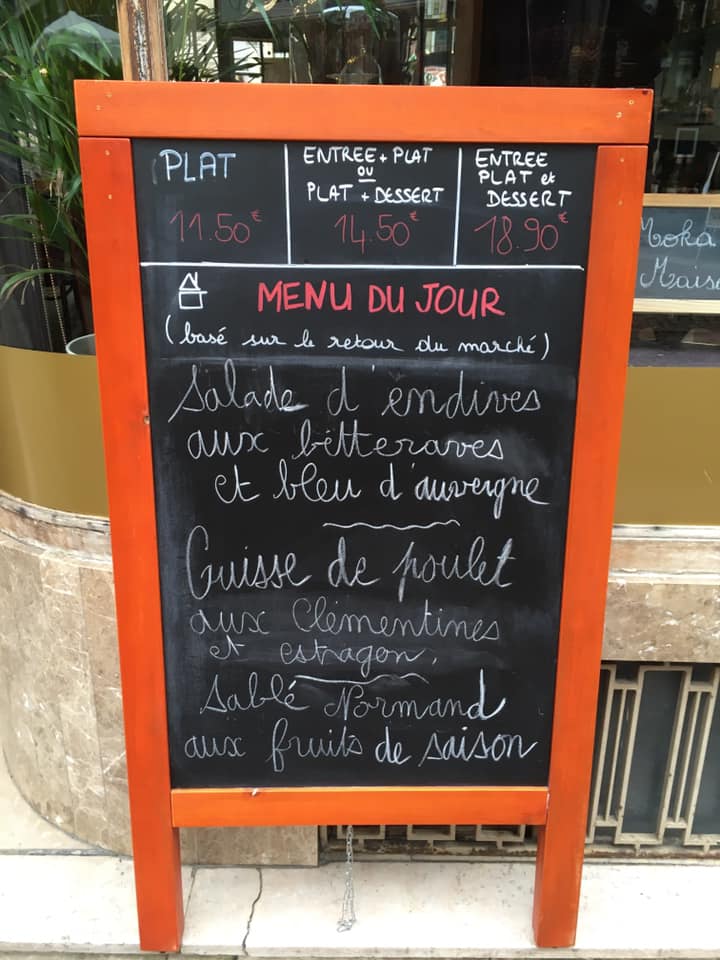 PLAT
11.50€
ENTREE + PLAT
OU
PLAT + DESSERT
14.50€
ENTREE
PLAT et
DESSERT
18.90€
MENU DU JOUR
(basé sur le retour du marché)
Salade d'endives
aux bétteraves
et bleu d'auvergne
Cuisse de poulet
aux Clémentines
et estragon.
Sablé Normand
aux fruits de saison
Moka
Mais